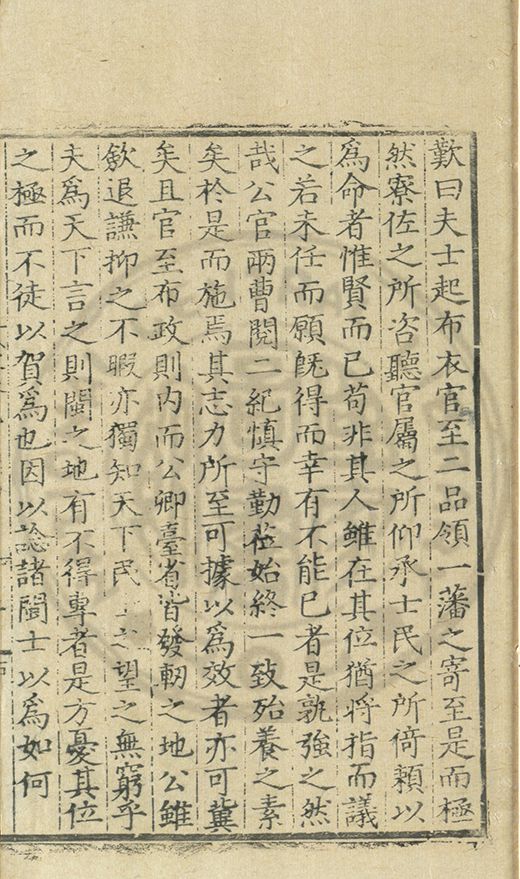 歎曰夫士起布衣官至二品領一藩之寄至是而極
然寮佐之所咨聽官屬之所仰承士民之所倚賴以
為命者惟賢而已苟非其人雖在其位猶將指而議
之若未任而願旣得而幸有不能已者是孰強之然
哉公官兩曹閱二紀慎守勤莅始終一致殆養之素
矣於是而施焉其志力所至可據以為效者亦可冀
矣且官至布政則內而公卿臺省皆發軔之地公雖
歛退謙抑之不暇亦獨知天下民之望之無窮乎
夫為天下言之則閩之地有不得專者是方憂其位
之極而不徒以賀為也因以諗諸閩士以為如何